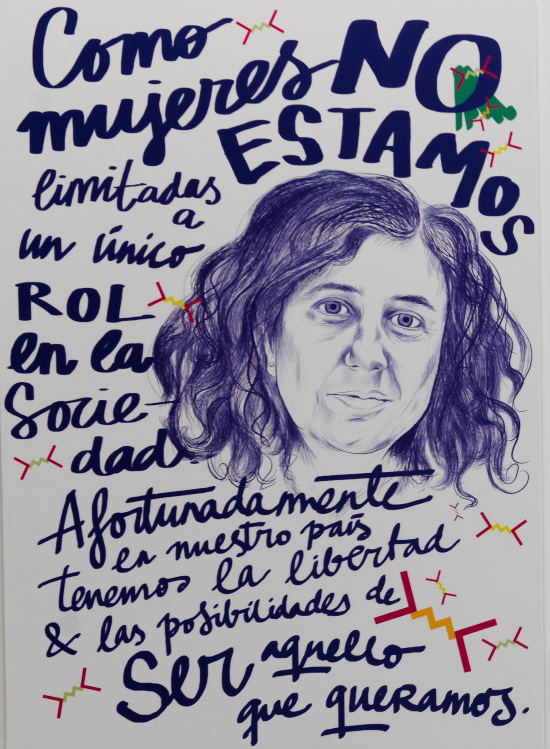 Como
mujeres NO
ESTAMOS
limitadas
a
un único
ROL
en la
Socie-
dad.
Afortunadamente
en nuestro país
tenemos la libertad
& las posibilidades de
Ser aquello
que queramos.